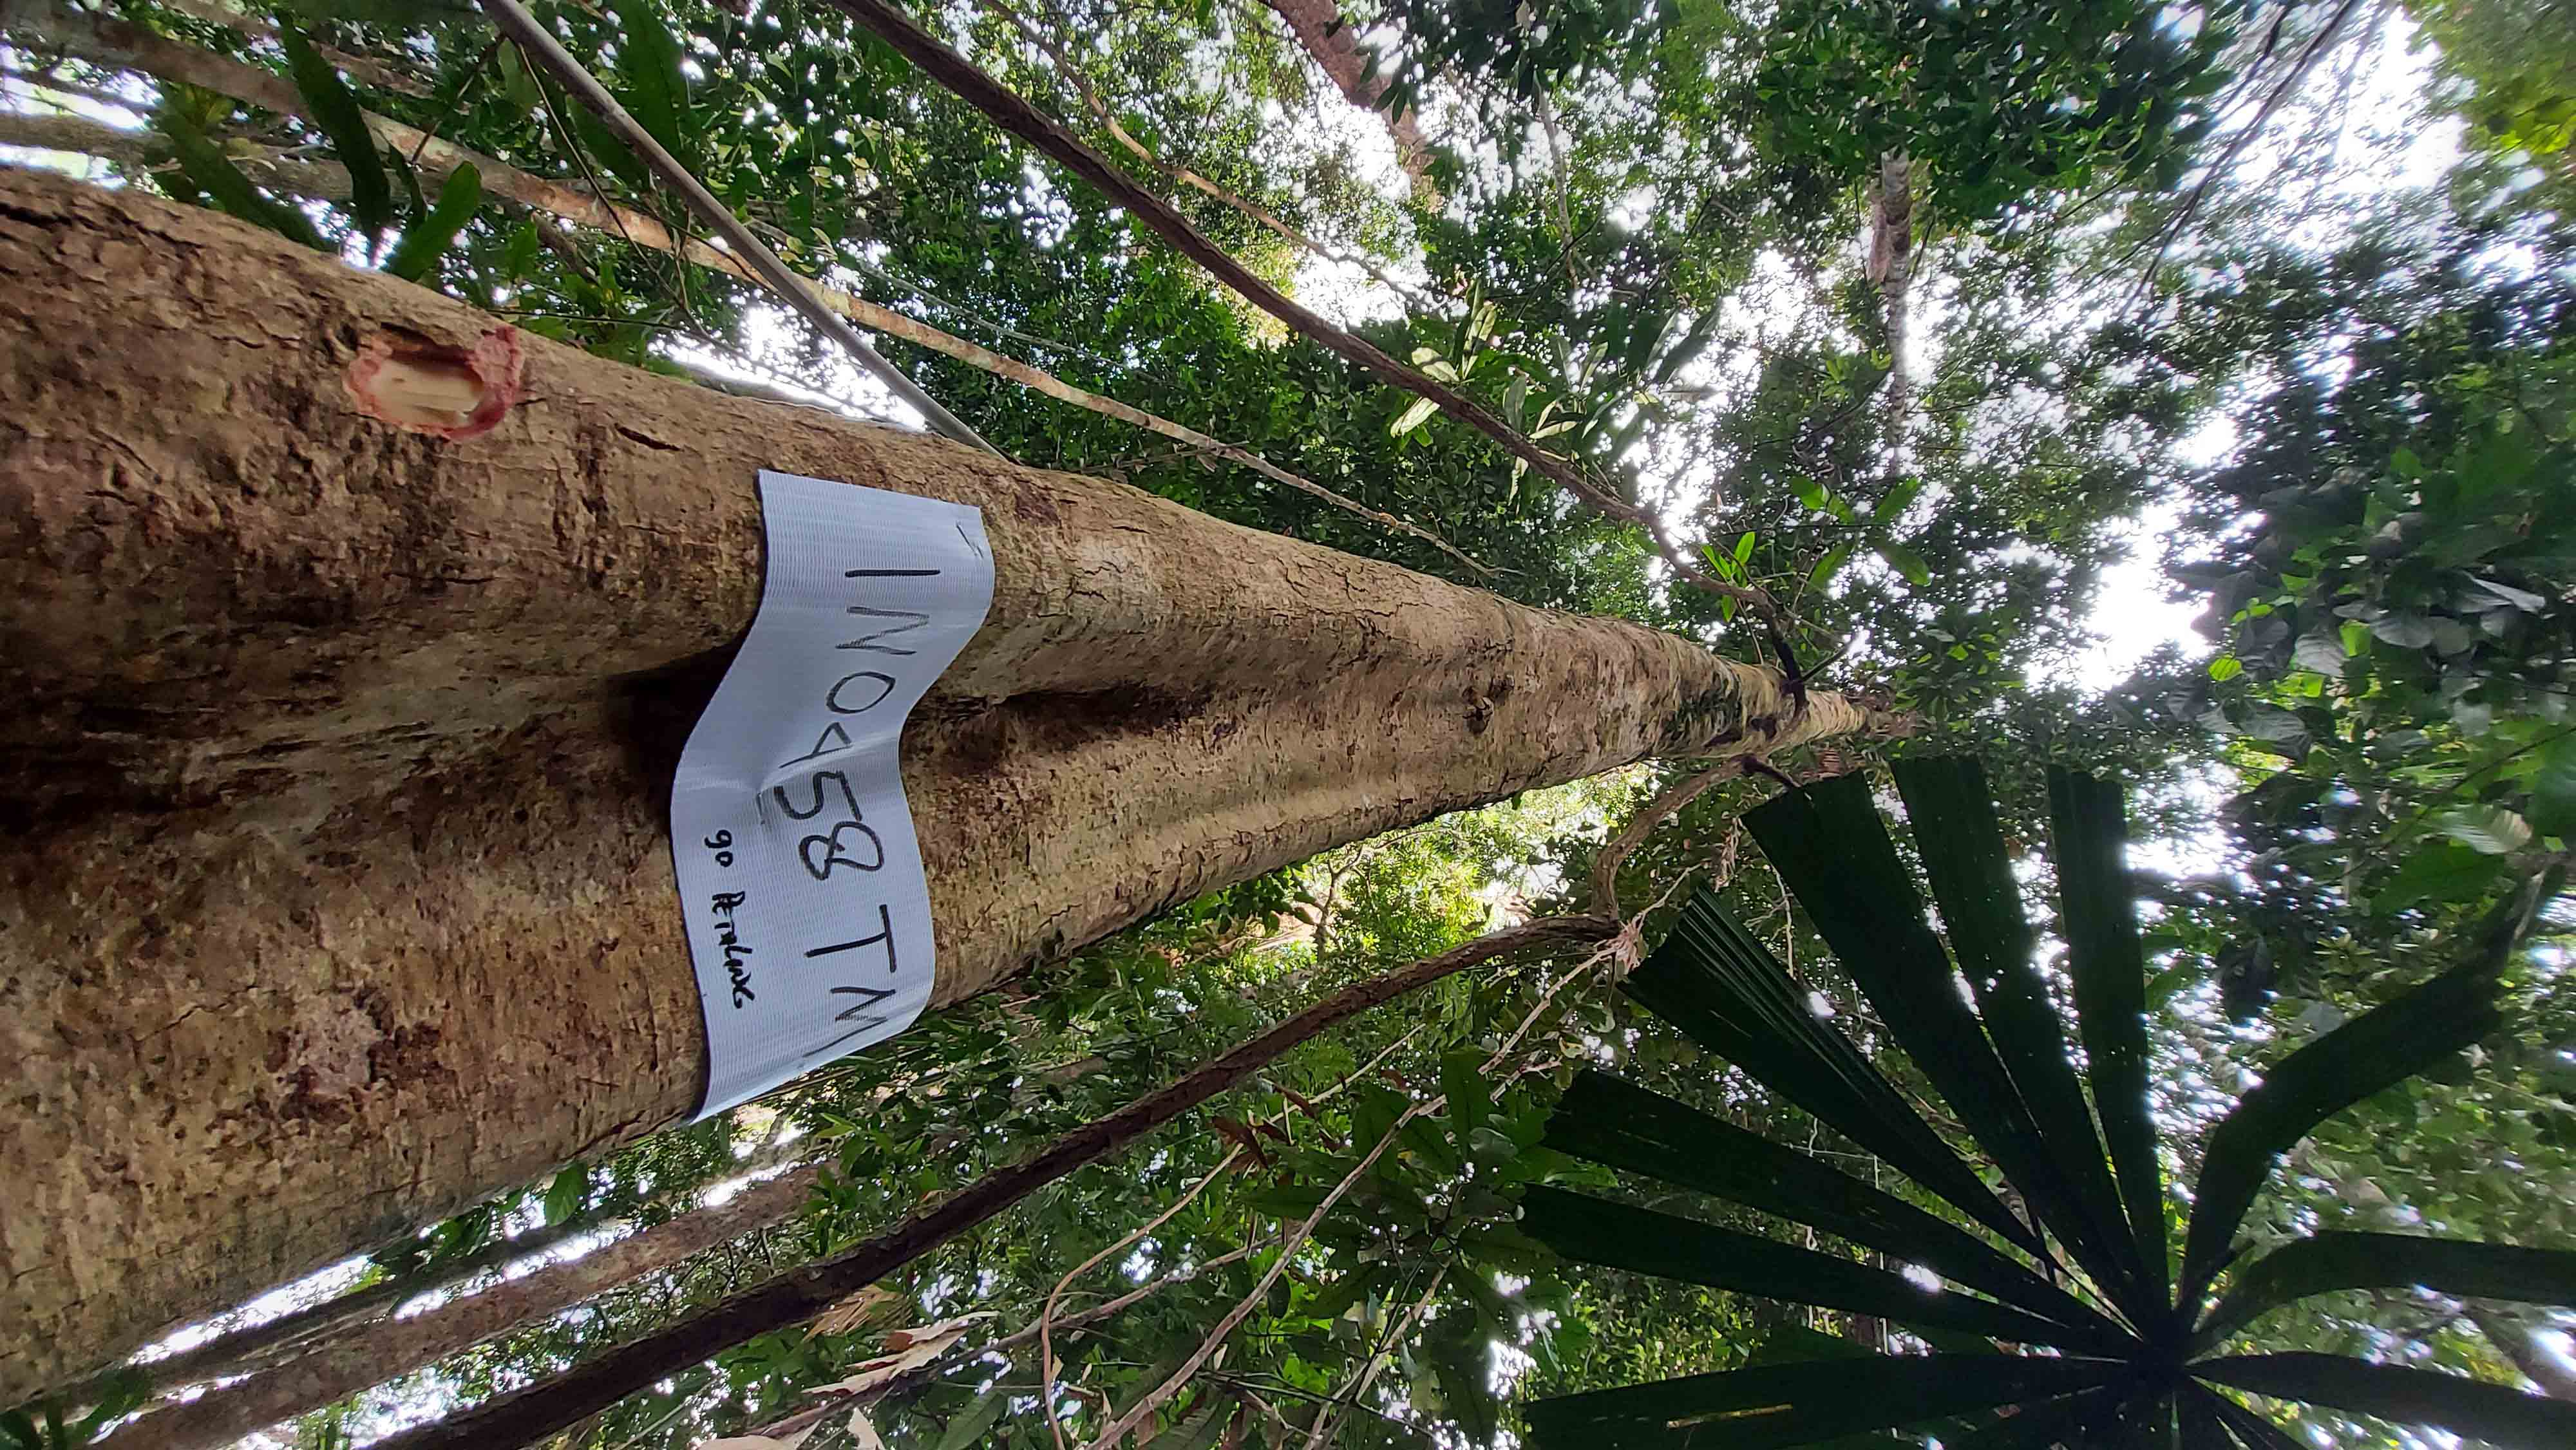 INO458 TM
90 PETALING